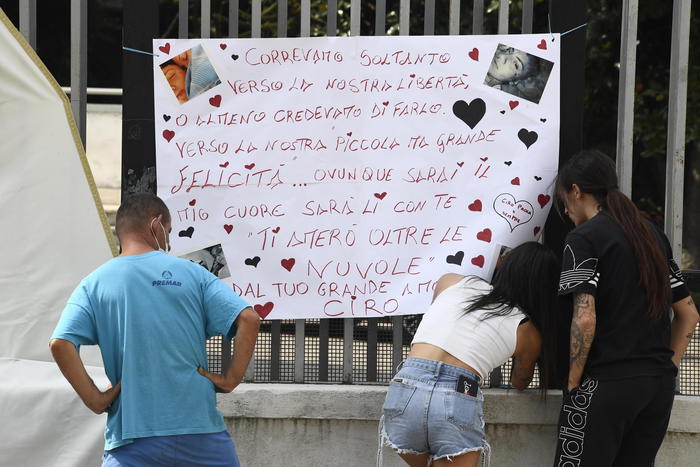 CORREVAMO SOLTANTO
VERSO LA NOSTRA LIBERTÀ,
O ALMENO CREDEVAMO DI FARLO.
VERSO LA NOSTRA PICCOLA MA GRANDE
FELICITÀ... OVUNQUE SARAI IL
MIO CUORE SARÀ LÌ CON TE
"TI AMERÒ OLTRE LE
NUVOLE"
DAL TUO GRANDE AMO
CIRO
PREMAR
adidas